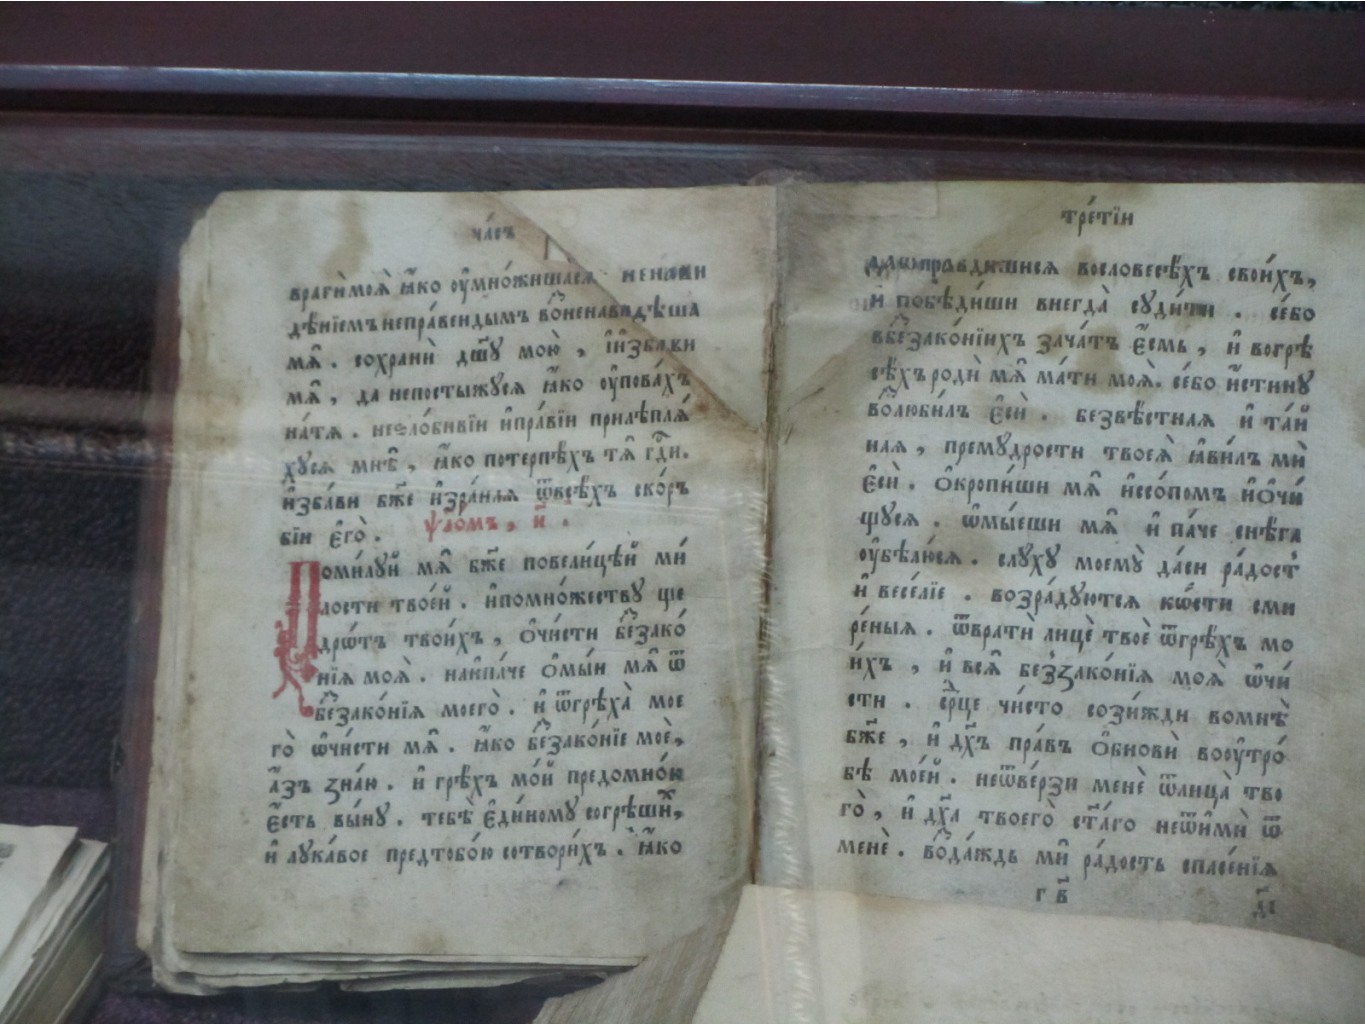 ча́съ
врагѝмоѧ̀ ꙗ҆́ко оу҆мно́жишасѧ. и ненави
дѣ́нїемъ непра́веднымъ во꙼ненави́дѣша
мѧ̀. сохранѝ дш҃у мою̀, и҆и҆зба́ви
мѧ̀, да непостыжуся ꙗ҆́ко оу҆пова́хъ
на́тѧ. незло́бивїи и҆пра́вїи прилѣплѧ́
хусѧ мнѣ̀, ꙗ҆́ко потерпѣ́хъ тѧ̀ гд҇и.
и҆зба́ви бж҃е и҆зра́илѧ ѿвсѣ́хъ ско́ръ
бїи є҆го̀. ѱало́мъ, н҃.
Поми́луй мѧ̀ бж҃е повели́цѣй ми́
лости твое́й. и҆помно́жеству ще
дро́тъ твои́хъ, ѻ҆чи́сти без̾зако́
нїѧ моѧ̀. наипа́че ѻ҆мы́и мѧ̀ ѿ
без̾зако́нїѧ моего̀. и҆ ѿгрѣха̀ мое
го̀ ѡ҆чи́сти мѧ̀. ꙗ҆́ко без̾зако́нїе моѐ,
а҆́зъ ꙁна́ю. и҆ грѣ́хъ мо́й предомно́ю
є҆́сть вы́ну. тебѣ̀ є҆ди́ному согрѣши́х꙽,
и҆ лука́вое предтобо́ю сотвори́хъ. ꙗ҆́ко
тре́тїи
да ѡ҆правди́шисѧ вословесѣ́хъ свои́хъ,
и҆ побѣди́ши внегда̀ суди́ти. се́бо
вбез̾зако́нїихъ зача́тъ є҆́смь, и҆ вогрѣ
сѣ́хъ родѝ мѧ̀ ма́ти моѧ̀. се́бо и҆́стину
во꙼люби́лъ є҆сѝ. безвѣ́стнаѧ и҆ та́й
наѧ, прему́дрости твоеѧ̀ ꙗ҆ви́лъ мѝ
є҆сѝ. ѻ҆кропи́ши мѧ̀ и҆ссо́помъ и҆ѻ҆чи́
щусѧ. ѡ҆мы́еши мѧ̀ и҆ па́че снѣ́га
оу҆бѣлю́сѧ. слу́ху моему̀ да́си ра́дост꙽
и҆ весе́лїе. возра́дуютсѧ ко́сти сми
ре́ныѧ. ѿвратѝ лицѐ твоѐ ѿгрѣ́хъ мо
и́хъ, и҆ всѧ̀ безꙁако́нїѧ моѧ̀ ѡ҆чи́
сти. ср҇це чи́сто сози́жди вомнѣ̀
бж҃е, и҆ дх҃ъ пра́въ ѻ҆бновѝ вооу҆тро́
бѣ мое́й. неѿве́рзи менѐ ѿлица̀ тво
го̀, и҆ дх҃а твоего̀ ст҃а́го неѿимѝ ѿ
менѐ. во꙼да́ждь мѝ ра́дость спасе́нїѧ
г в҃